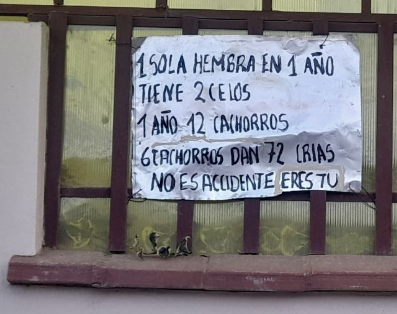 1 SOLA HEMBRA EN 1 AÑO
TIENE 2 CELOS
1 AÑO 12 CACHORROS
6 CACHORROS DAN 72 CRIAS
NO ES ACCIDENTE ERES TU